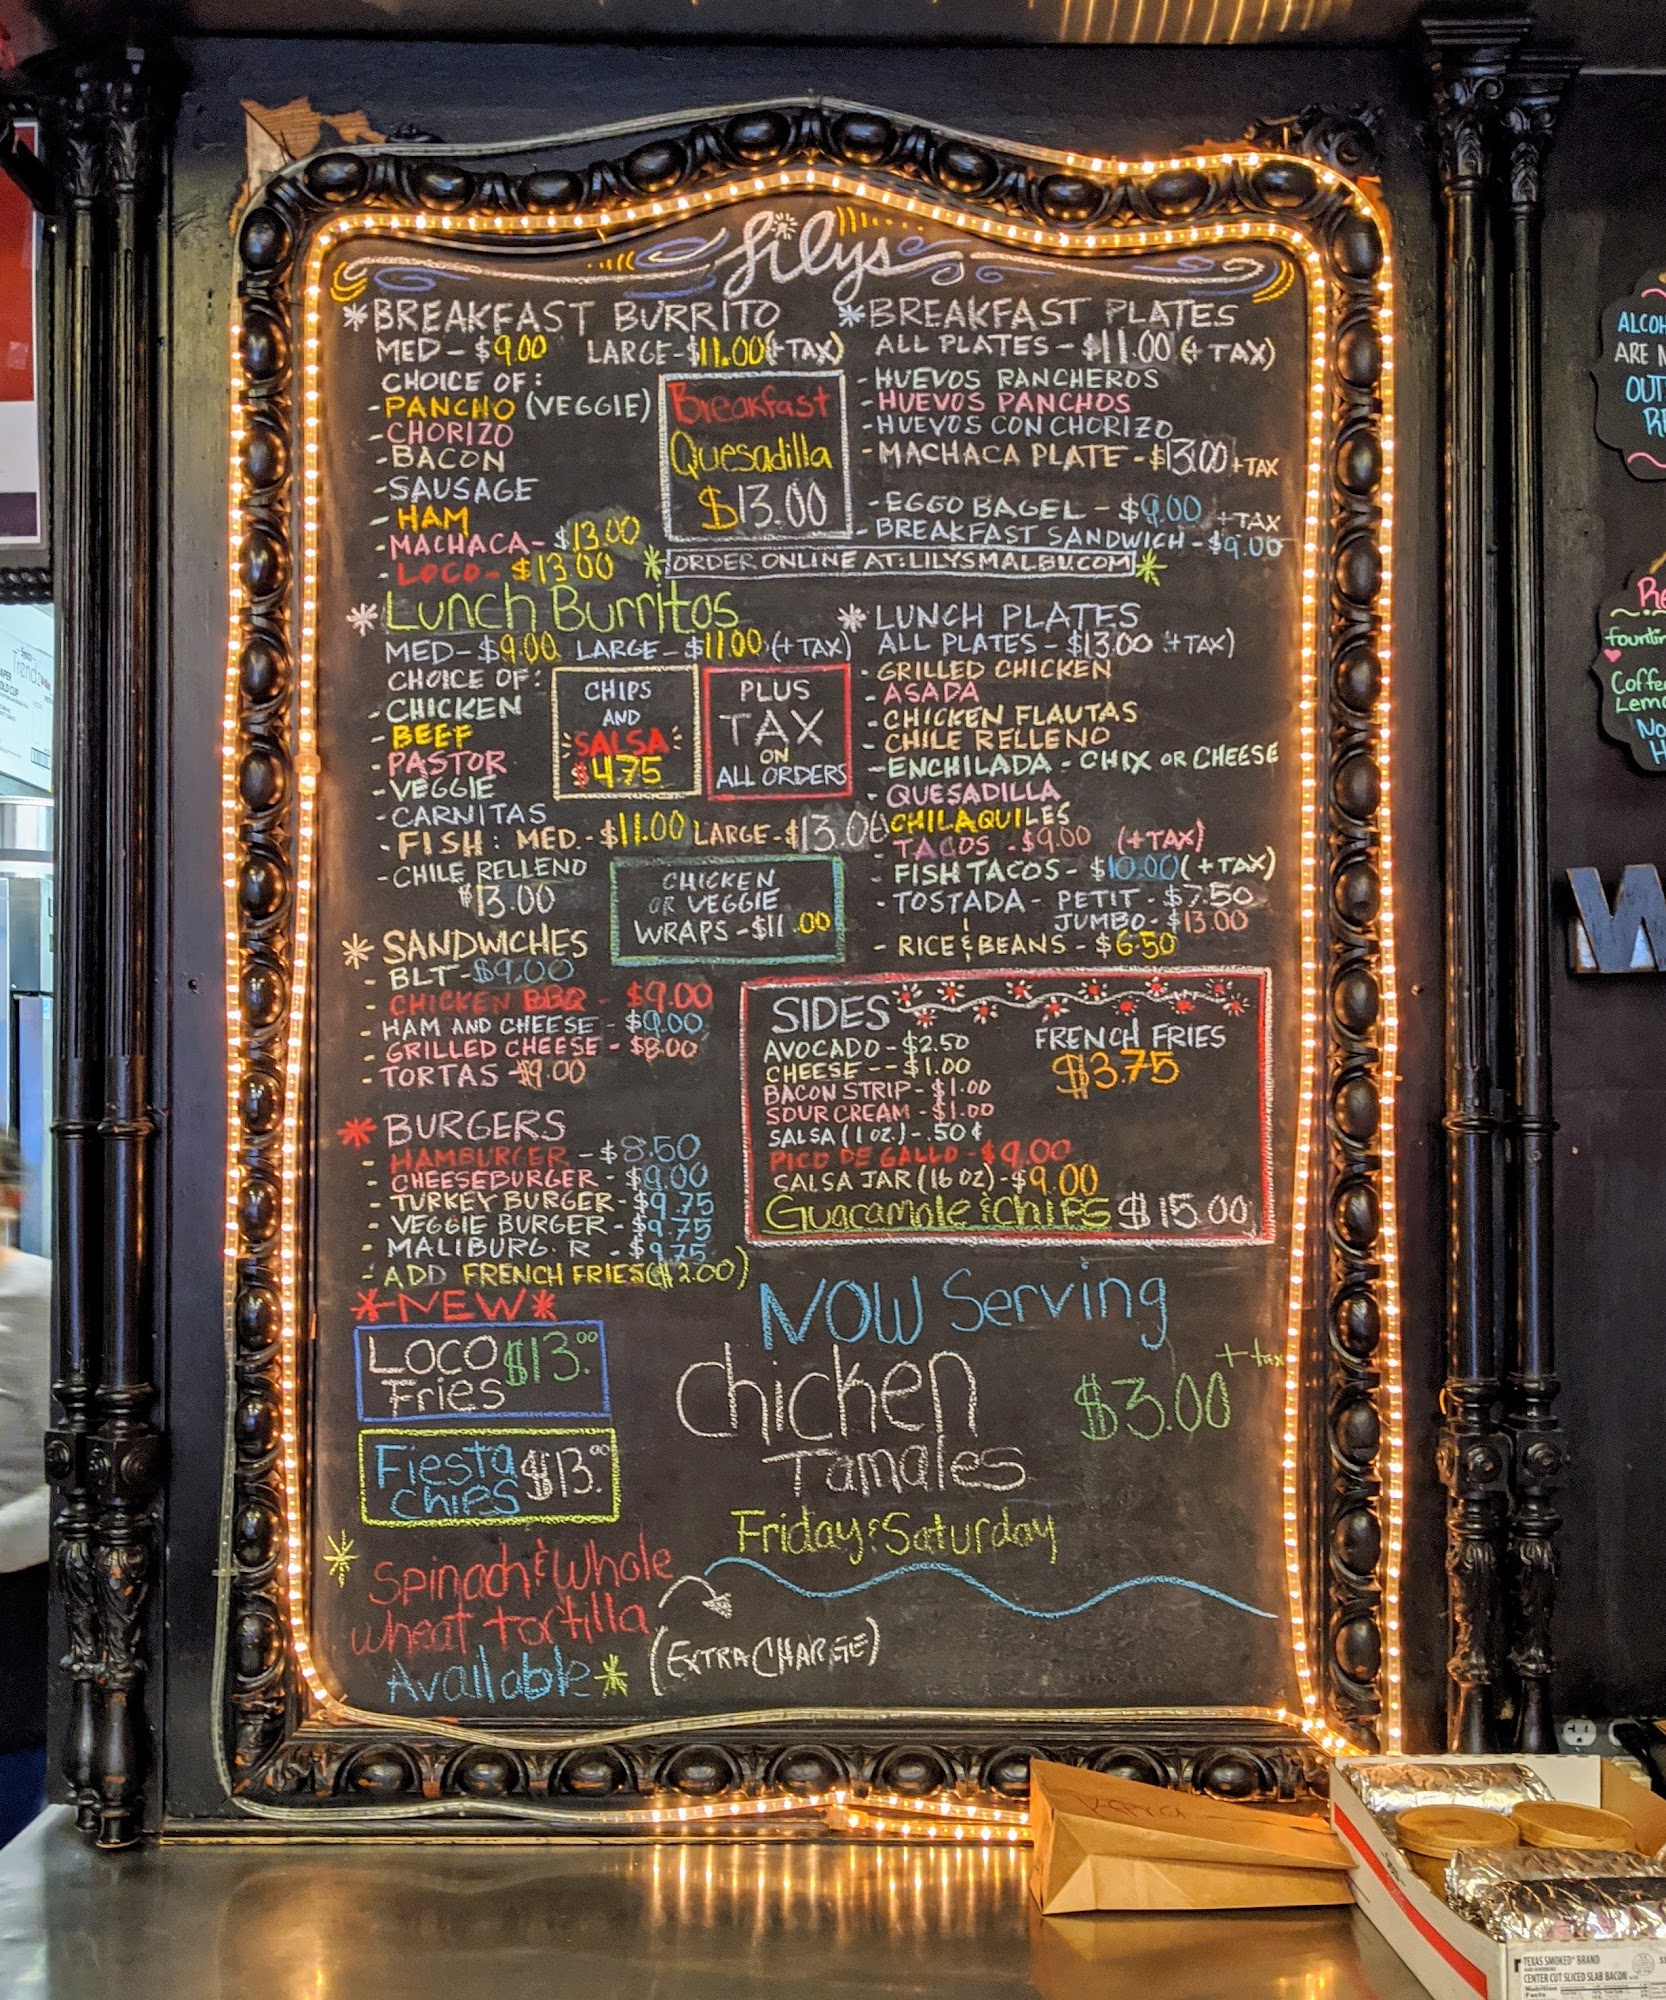 Lilys
*BREAKFAST BURRITO
MED-$9.00 LARGE-$11.00(+TAX)
CHOICE OF:
-PANCHO (VEGGIE)
-CHORIZO
-BACON
-SAUSAGE
-HAM
-MACHACA-$13.00
-LOCO-$13.00
Breakfast
Quesadilla
$13.00
*BREAKFAST PLATES
ALL PLATES-$11.00 (+TAX)
-HUEVOS RANCHEROS
-HUEVOS PANCHOS
-HUEVOS CON CHORIZO
-MACHACA PLATE-$13.00+TAX
-EGGO BAGEL-$9.00 +TAX
-BREAKFAST SANDWICH-$9.00
*ORDER ONLINE AT:LILYSMALBU.COM*
*Lunch Burritos
MED-$9.00 LARGE-$11.00 (+TAX)
CHOICE OF:
-CHICKEN
-BEEF
-PASTOR
-VEGGIE
-CARNITAS
-FISH: MED.-$11.00 LARGE-$13.00
-CHILE RELLENO
$13.00
CHIPS
AND
SALSA
$4.75
PLUS
TAX
ON
ALL ORDERS
CHICKEN
OR VEGGIE
WRAPS-$11.00
*LUNCH PLATES
ALL PLATES-$13.00 +TAX)
-GRILLED CHICKEN
-ASADA
-CHICKEN FLAUTAS
-CHILE RELLENO
-ENCHILADA-CHIX OR CHEESE
-QUESADILLA
CHILAQUILES
-TACOS-$9.00 (+TAX)
-FISH TACOS-$10.00(+TAX)
-TOSTADA-PETIT-$7.50
JUMBO-$13.00
-RICE & BEANS-$6.50
*SANDWICHES
-BLT-$9.00
-CHICKEN BBQ-$9.00
-HAM AND CHEESE-$9.00
-GRILLED CHEESE-$8.00
-TORTAS-$9.00
*BURGERS
-HAMBURGER-$8.50
-CHEESEBURGER-$9.00
-TURKEY BURGER-$9.75
-VEGGIE BURGER-$9.75
-MALIBURG.R-$9.75
-ADD FRENCH FRIES($2.00)
SIDES
AVOCADO-$2.50
CHEESE--$1.00
BACON STRIP-$1.00
SOUR CREAM-$1.00
SALSA (1 OZ.)-.50¢
PICO DE GALLO-$9.00
SALSA JAR (16 OZ)-$9.00
Guacamole & Chips $15.00
FRENCH FRIES
$3.75
*NEW*
LOCO Fries $13.00
Fiesta Chips $13.00
NOW Serving
Chicken
Tamales
$3.00 + tax
Friday & Saturday
*Spinach & Whole
wheat tortilla
Available*
(EXTRA CHARGE)
OUT
Coffee
W
TEXAS SMOKED BRAND
CENTER CUT SLICED SLAB BACON
Nutrition
Facts